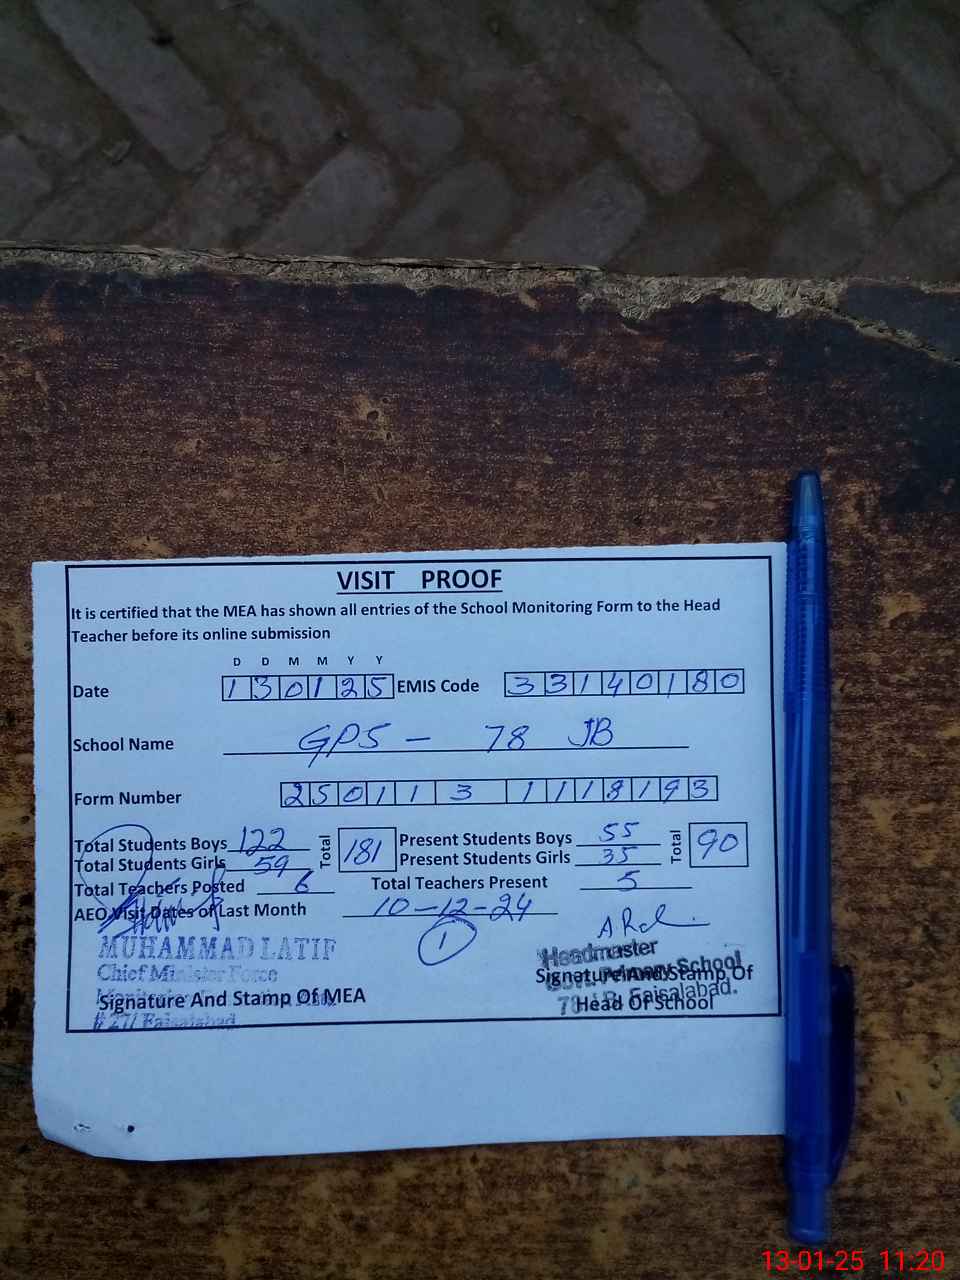 VISIT PROOF
It is certified that the MEA has shown all entries of the School Monitoring Form to the Head
Teacher before its online submission
D D M M Y Y
Date 1 3 0 1 2 5 EMIS Code 3 3 1 4 0 1 8 0
School Name GPS - 78 JB
Form Number 2 5 0 1 1 3 1 1 1 8 1 9 3
Total Students Boys 122 Total 181 Present Students Boys 55 Total 90
Total Students Girls 59 Present Students Girls 35
Total Teachers Posted 6 Total Teachers Present 5
AEO Visit Dates of Last Month 10-12-24
1
MUHAMMAD LATIF
Chief Minister Force
# 27/ Faisalabad
Signature And Stamp Of MEA
Headmaster
Govt. Primary School
78 J.B. Faisalabad.
Signature And Stamp Of
Head Of School
13-01-25 11:20